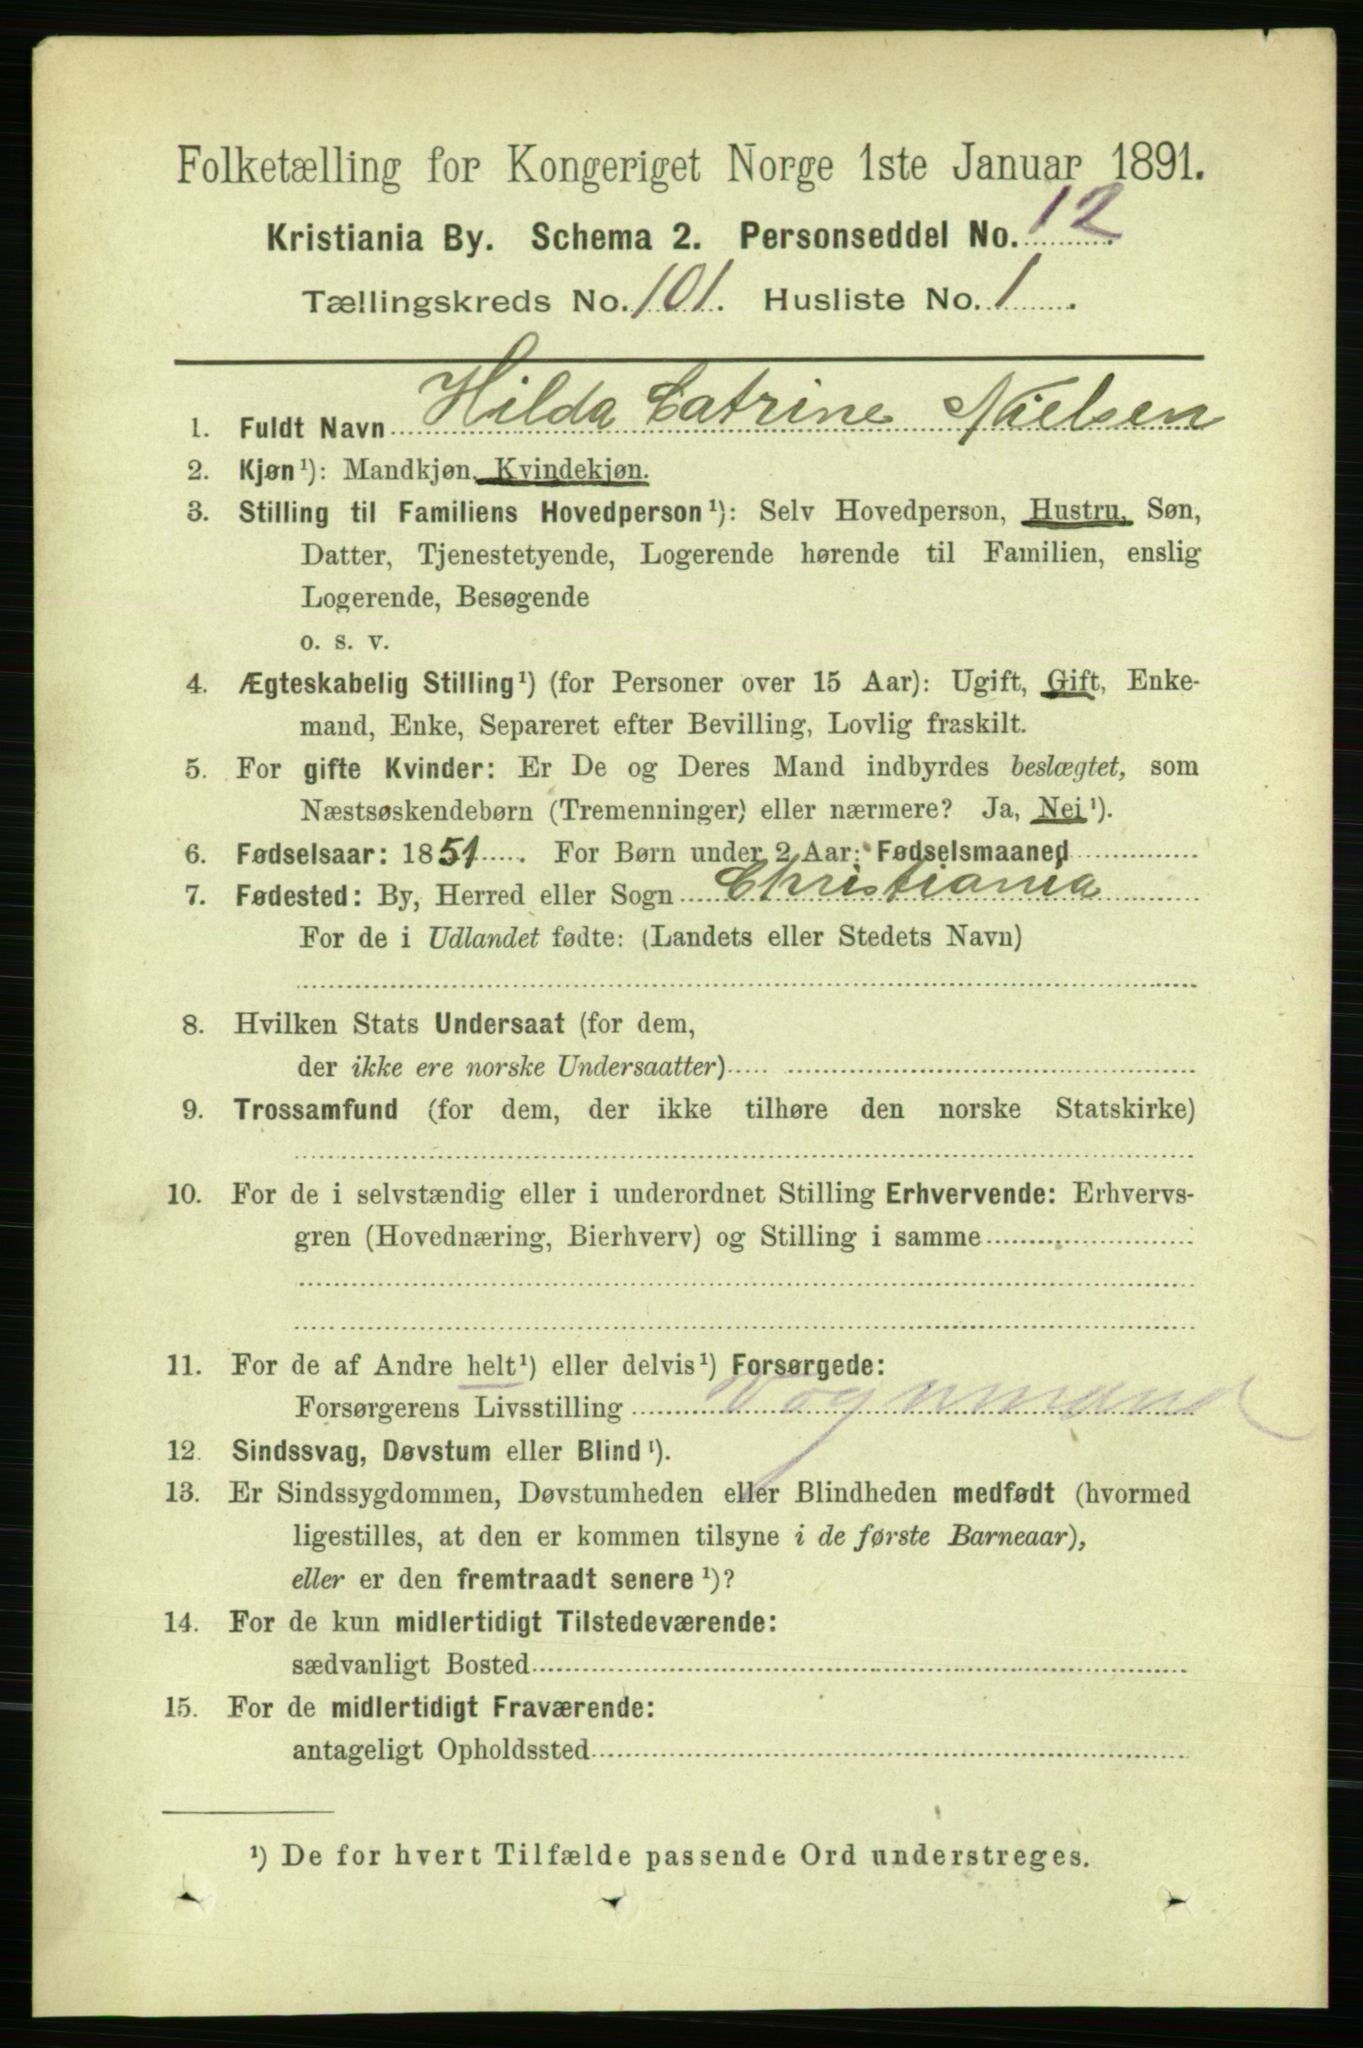 Folketælling for Kongeriget Norge 1ste Januar 1891.
Kristiania By. Schema 2. Personseddel No. 12
Tællingskreds No. 101. Husliste No. 1.
1. Fuldt Navn Hilda Catrine Nielsen
2. Kjøn¹): Mandkjøn, Kvindekjøn.
3. Stilling til Familiens Hovedperson¹): Selv Hovedperson, Hustru, Søn,
Datter, Tjenestetyende, Logerende hørende til Familien, enslig
Logerende, Besøgende
o. s. v.
4. Ægteskabelig Stilling¹) (for Personer over 15 Aar): Ugift, Gift, Enke-
mand, Enke, Separeret efter Bevilling, Lovlig fraskilt.
5. For gifte Kvinder: Er De og Deres Mand indbyrdes beslægtet, som
Næstsøskendebørn (Tremenninger) eller nærmere? Ja, Nei¹).
6. Fødselsaar: 1851. For Børn under 2 Aar: Fødselsmaaned
7. Fødested: By, Herred eller Sogn Christiania
For de i Udlandet fødte: (Landets eller Stedets Navn)
8. Hvilken Stats Undersaat (for dem,
der ikke ere norske Undersaatter)
9. Trossamfund (for dem, der ikke tilhøre den norske Statskirke)
10. For de i selvstændig eller i underordnet Stilling Erhvervende: Erhvervs-
gren (Hovednæring, Bierhverv) og Stilling i samme
11. For de af Andre helt¹) eller delvis¹) Forsørgede:
Forsørgerens Livsstilling Vognmand
12. Sindssvag, Døvstum eller Blind¹).
13. Er Sindssygdommen, Døvstumheden eller Blindheden medfødt (hvormed
ligestilles, at den er kommen tilsyne i de første Barneaar),
eller er den fremtraadt senere¹)?
14. For de kun midlertidigt Tilstedeværende:
sædvanligt Bosted
15. For de midlertidigt Fraværende:
antageligt Opholdssted
¹) De for hvert Tilfælde passende Ord understreges.